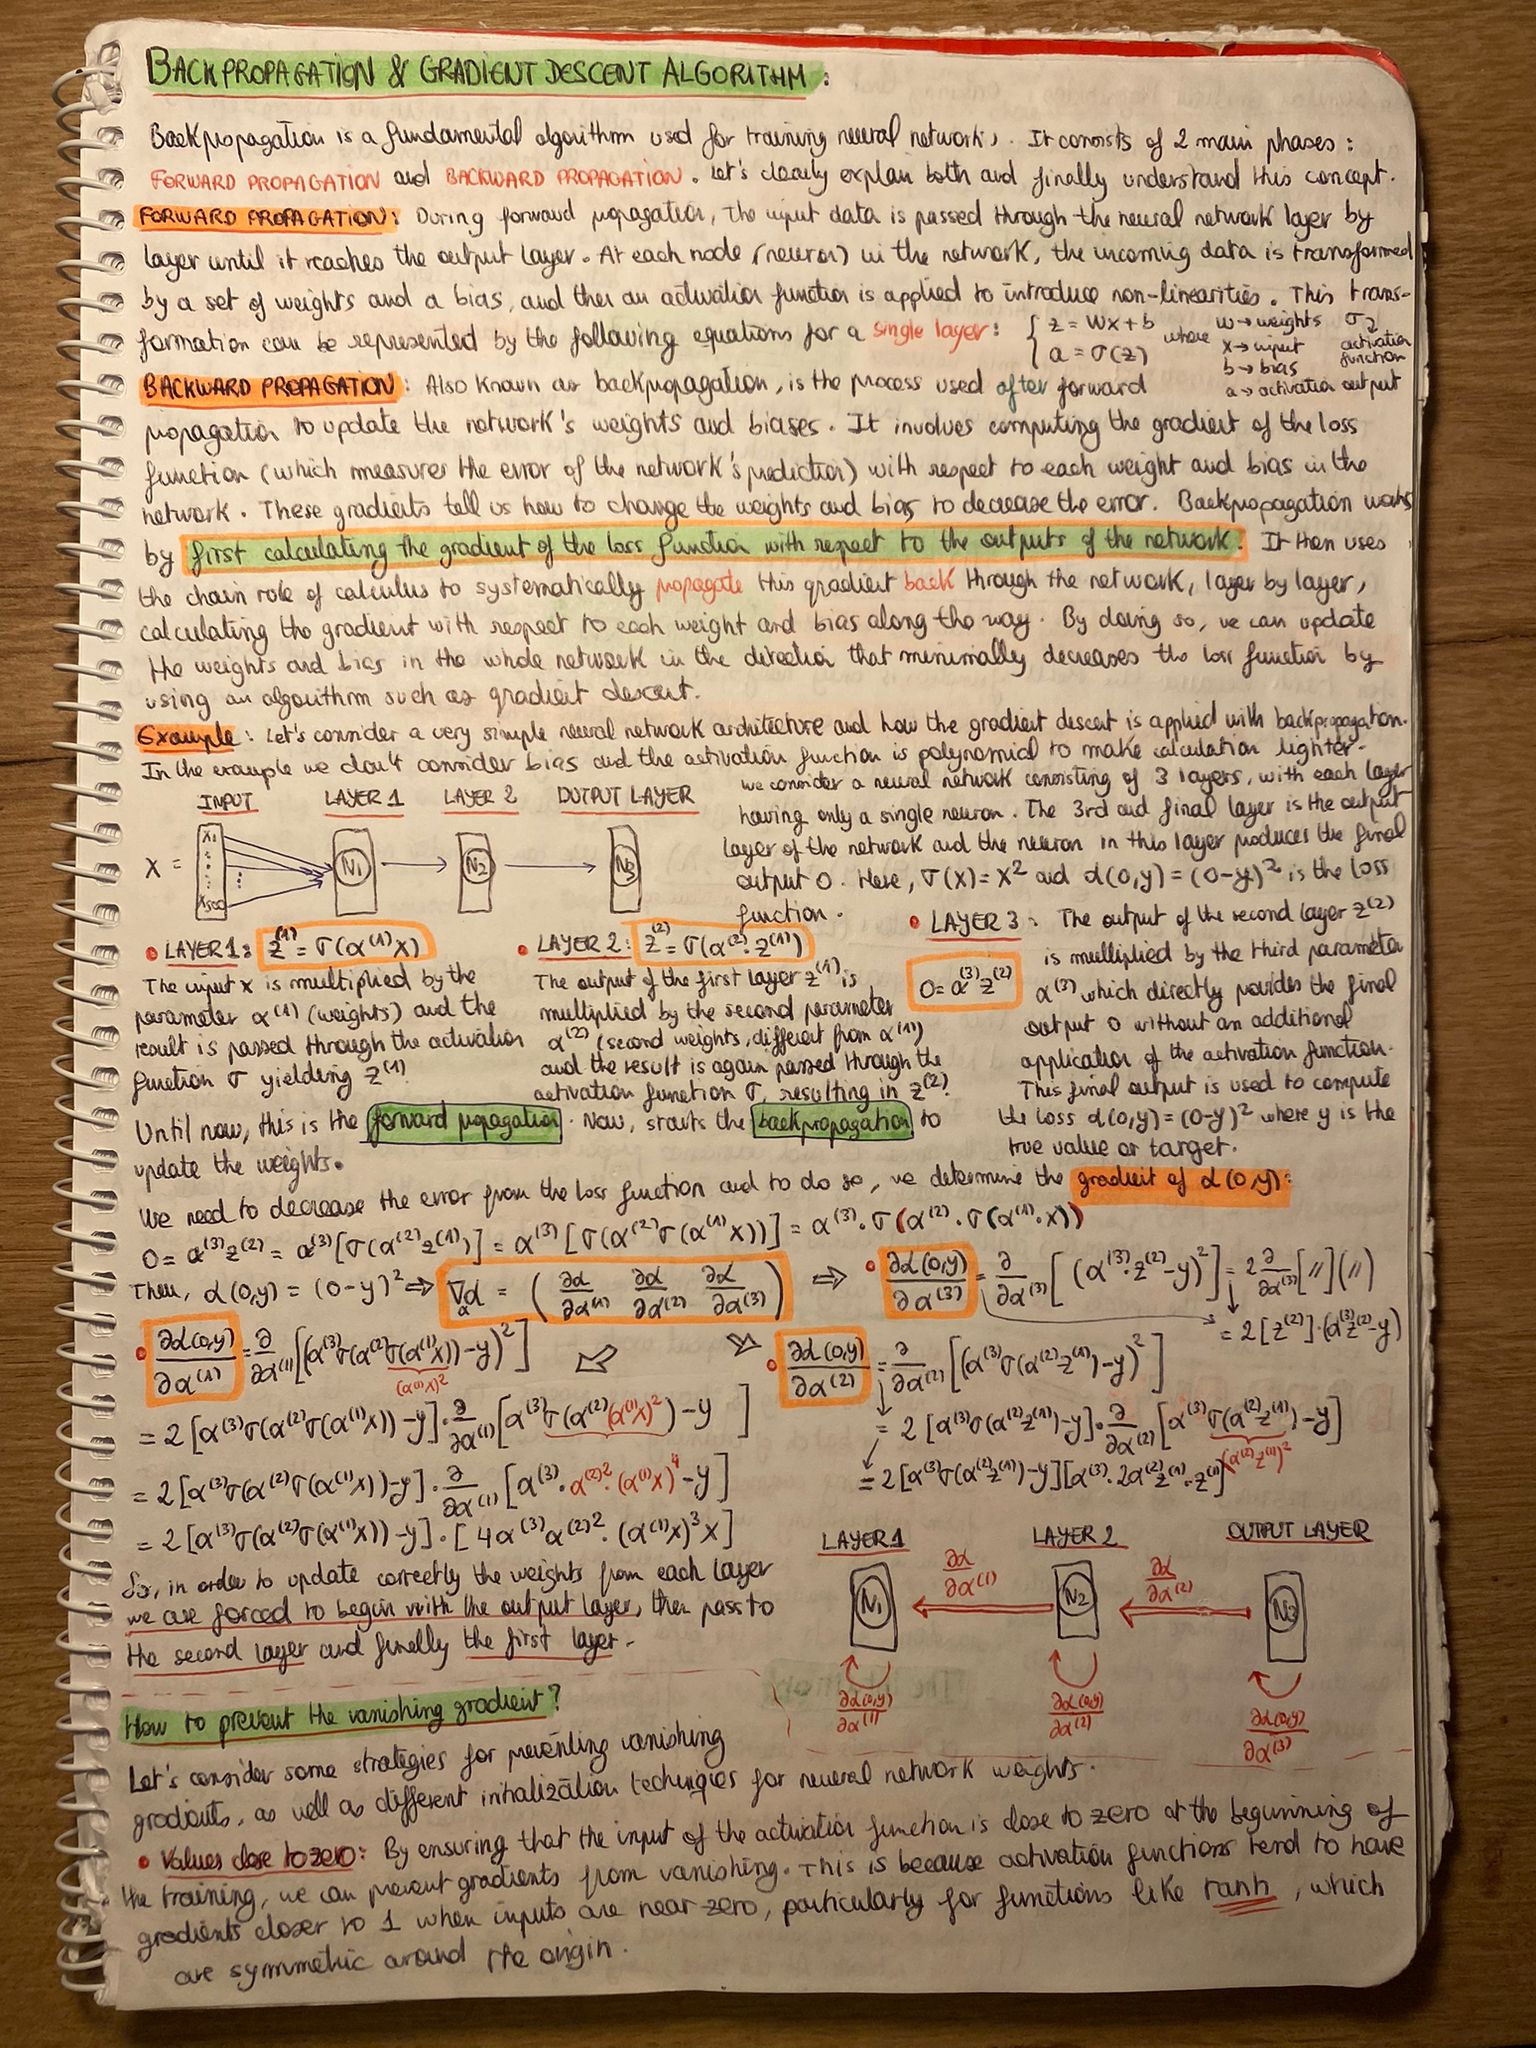 BACKPROPAGATION & GRADIENT DESCENT ALGORITHM:
Backpropagation is a fundamental algorithm used for training neural networks. It consists of 2 main phases:
FORWARD PROPAGATION and BACKWARD PROPAGATION. Let's clearly explain both and finally understand this concept.
FORWARD PROPAGATION: During forward propagation, the input data is passed through the neural network layer by
layer until it reaches the output layer. At each node (neuron) in the network, the incoming data is transformed
by a set of weights and a bias, and then an activation function is applied to introduce non-linearities. This trans-
formation can be represented by the following equations for a single layer: { z = Wx+b
a = σ(z) where
w → weights
x → input
b → bias
a → activation output
σ → activation function
BACKWARD PROPAGATION: Also known as backpropagation, is the process used after forward
propagation to update the network's weights and biases. It involves computing the gradient of the loss
function (which measures the error of the network's prediction) with respect to each weight and bias in the
network. These gradients tell us how to change the weights and bias to decrease the error. Backpropagation works
by first calculating the gradient of the loss function with respect to the outputs of the network. It then uses
the chain role of calculus to systematically propagate this gradient back through the network, layer by layer,
calculating the gradient with respect to each weight and bias along the way. By doing so, we can update
the weights and bias in the whole network in the direction that minimally decreases the loss function by
using an algorithm such as gradient descent.
Example: Let's consider a very simple neural network architecture and how the gradient descent is applied with backpropagation.
In the example we don't consider bias and the activation function is polynomial to make calculation lighter.
INPUT LAYER 1 LAYER 2 OUTPUT LAYER
X = X1 X500 N1 N2 N3
we consider a neural network consisting of 3 layers, with each layer
having only a single neuron. The 3rd and final layer is the output
layer of the network and the neuron in this layer produces the final
output O. Here, σ(x) = x² and α(O,y) = (O-y)² is the loss
function.
• LAYER 1: z⁽¹⁾ = σ(α⁽¹⁾x)
The input x is multiplied by the
parameter α⁽¹⁾ (weights) and the
result is passed through the activation
function σ yielding z⁽¹⁾.
• LAYER 2: z⁽²⁾ = σ(α⁽²⁾·z⁽¹⁾)
The output of the first layer z⁽¹⁾ is
multiplied by the second parameter
α⁽²⁾ (second weights, different from α⁽¹⁾)
and the result is again passed through the
activation function σ, resulting in z⁽²⁾.
• LAYER 3: The output of the second layer z⁽²⁾
O = α⁽³⁾z⁽²⁾
is multiplied by the third parameter
α⁽³⁾ which directly provides the final
output O without an additional
application of the activation function.
This final output is used to compute
the loss α(O,y) = (O-y)² where y is the
true value or target.
Until now, this is the forward propagation. Now, starts the backpropagation to
update the weights.
We need to decrease the error from the loss function and to do so, we determine the gradient of α(O,y):
O = α⁽³⁾z⁽²⁾ = α⁽³⁾[σ(α⁽²⁾z⁽¹⁾)] = α⁽³⁾[σ(α⁽²⁾σ(α⁽¹⁾x))] = α⁽³⁾·σ(α⁽²⁾·σ(α⁽¹⁾·x))
Then, α(O,y) = (O-y)² ⇒ ∇α α = (∂α/∂α⁽¹⁾ ∂α/∂α⁽²⁾ ∂α/∂α⁽³⁾) ⇒ • ∂α(O,y)/∂α⁽³⁾ = ∂/∂α⁽³⁾[(α⁽³⁾·z⁽²⁾-y)²] = 2 ∂/∂α⁽³⁾[〃](〃)
= 2[z⁽²⁾]·(α⁽³⁾z⁽²⁾-y)
• ∂α(O,y)/∂α⁽¹⁾ = ∂/∂α⁽¹⁾[(α⁽³⁾σ(α⁽²⁾σ(α⁽¹⁾x))-y)²]
(α⁽¹⁾x)²
= 2[α⁽³⁾σ(α⁽²⁾σ(α⁽¹⁾x))-y]·∂/∂α⁽¹⁾[α⁽³⁾σ(α⁽²⁾(α⁽¹⁾x)²)-y]
= 2[α⁽³⁾σ(α⁽²⁾σ(α⁽¹⁾x))-y]·∂/∂α⁽¹⁾[α⁽³⁾·α⁽²⁾²·(α⁽¹⁾x)⁴-y]
= 2[α⁽³⁾σ(α⁽²⁾σ(α⁽¹⁾x))-y]·[4α⁽³⁾α⁽²⁾²·(α⁽¹⁾x)³x]
• ∂α(O,y)/∂α⁽²⁾ = ∂/∂α⁽²⁾[(α⁽³⁾σ(α⁽²⁾z⁽¹⁾)-y)²]
= 2[α⁽³⁾σ(α⁽²⁾z⁽¹⁾)-y]·∂/∂α⁽²⁾[α⁽³⁾σ(α⁽²⁾z⁽¹⁾)-y]
(α⁽²⁾z⁽¹⁾)²
= 2[α⁽³⁾σ(α⁽²⁾z⁽¹⁾)-y][α⁽³⁾·2α⁽²⁾z⁽¹⁾·z⁽¹⁾]
So, in order to update correctly the weights from each layer
we are forced to begin with the output layer, then pass to
the second layer and finally the first layer.
LAYER 1 LAYER 2 OUTPUT LAYER
N1 ∂α/∂α⁽¹⁾ N2 ∂α/∂α⁽²⁾ N3
∂α(O,y)/∂α⁽¹⁾ ∂α(O,y)/∂α⁽²⁾ ∂α(O,y)/∂α⁽³⁾
How to prevent the vanishing gradient?
Let's consider some strategies for preventing vanishing
gradients, as well as different initialization techniques for neural network weights.
• Values close to zero: By ensuring that the input of the activation function is close to zero at the beginning of
the training, we can prevent gradients from vanishing. This is because activation functions tend to have
gradients closer to 1 when inputs are near-zero, particularly for functions like tanh, which
are symmetric around the origin.